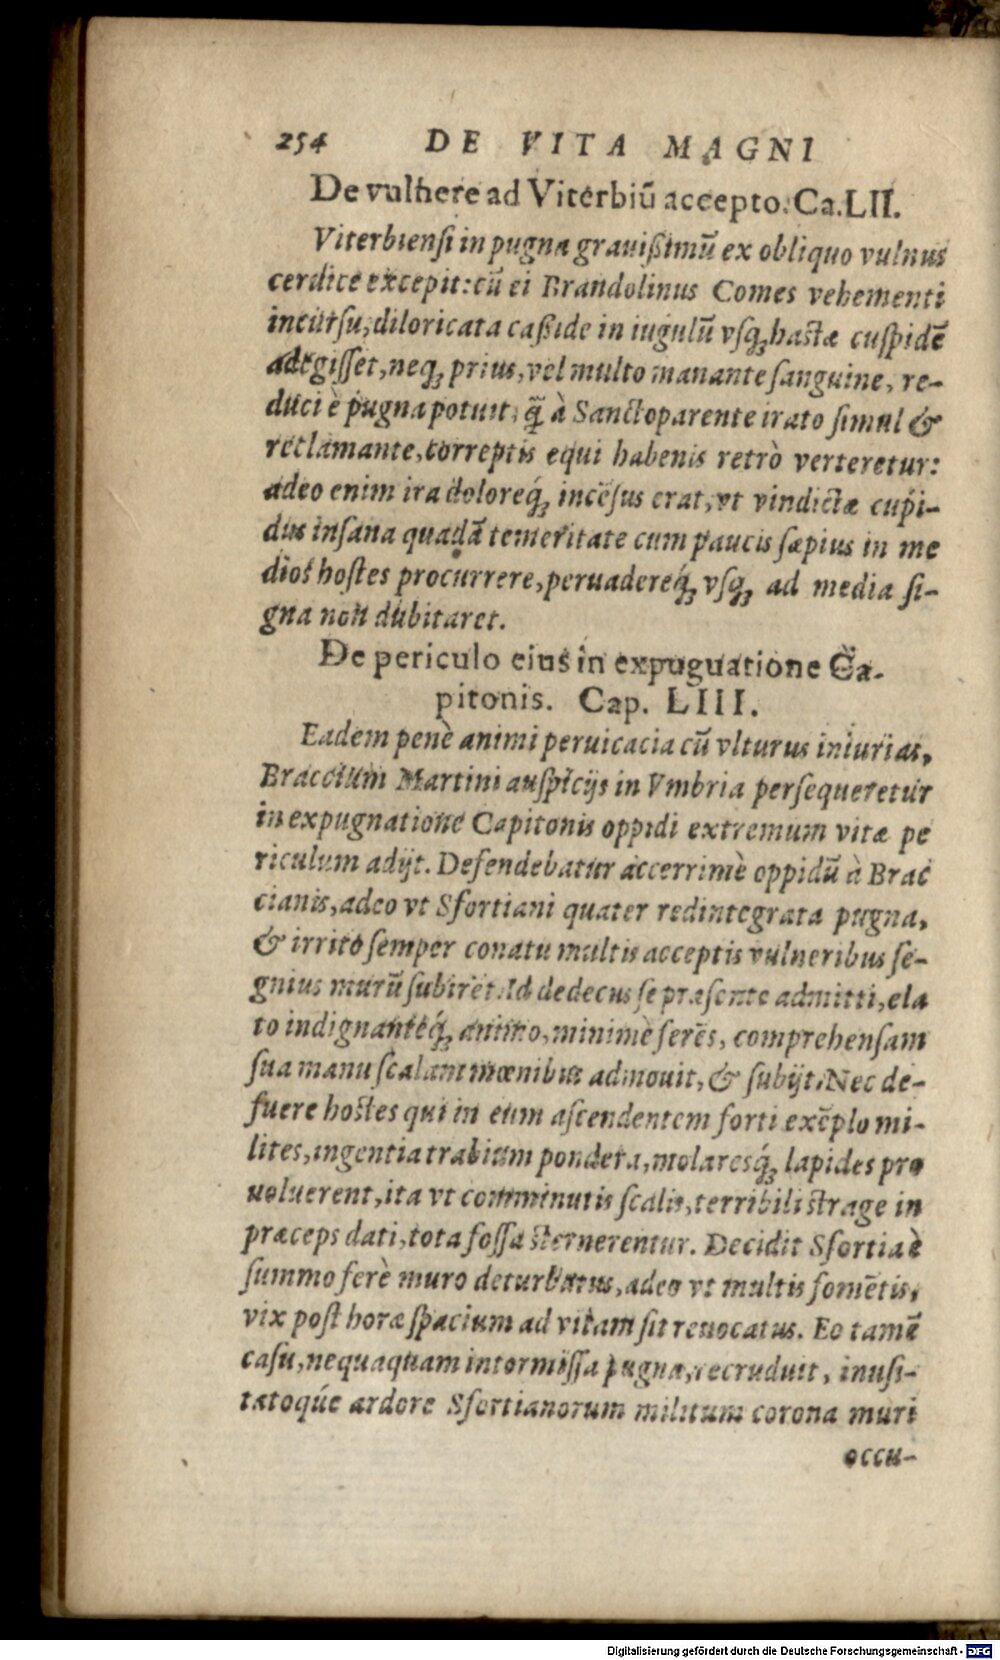 254 DE VITA MAGNI
De vulnere ad Viterbiū accepto. Ca. LII.
Viterbiensi in pugna grauißimū ex obliquo vulnus
ceruice excepit: cū ei Brandolinus Comes vehementi
incursu, diloricata caßide in iugulū vsq; hastæ cuspidē
adegisset, neq; prius, vel multo manante sanguine, re-
duci è pugna potuit, q̄ à Sanctoparente irato simul &
reclamante, correptis equi habenis retrò verteretur:
adeo enim ira doloreq́; incēsus erat, vt vindictæ cupi-
dus insana quadā temeritate cum paucis sæpius in me
dios hostes procurrere, peruadereq́; vsq; ad media si-
gna non dubitaret.
De periculo eius in expugnatione Ca-
pitonis. Cap. LIII.
Eadem penè animi peruicacia cū vlturus iniurias,
Braccium Martini auspicijs in Vmbria persequeretur
in expugnatione Capitonis oppidi extremum vitæ pe
riculum adijt. Defendebatur accerrimè oppidū à Brac
cianis, adeo vt Sfortiani quater redintegrata pugna,
& irrito semper conatu multis acceptis vulneribus se-
gnius murū subirēt. Id dedecus se præsente admitti, ela
to indignanteq́; animo, minimè ferēs, comprehensam
sua manu scalam mœnibus admouit, & subijt. Nec de-
fuere hostes qui in eum ascendentem forti exēplo mi-
lites, ingentia trabium pondera, molaresq́; lapides pro
uoluerent, ita vt comminutis scalis, terribili strage in
præceps dati, tota fossa sternerentur. Decidit Sfortia è
summo ferè muro deturbatus, adeo vt multis fomētis,
vix post horæ spacium ad vitam sit reuocatus. Eo tamē
casu, nequaquam intermissa pugna, recruduit, inusi-
tatoqúe ardore Sfortianorum militum corona muri
occu-
Digitalisierung gefördert durch die Deutsche Forschungsgemeinschaft - DFG